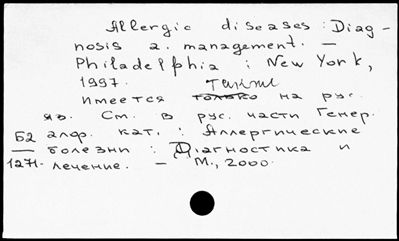 Allergic diseases : Diag-
nosis a. management. —
Philadelphia ; New York,
1997.
также
Имеется только на рус.
яз. См. в рус. части Генер.
алф. кат. : Аллергические
болезни : Диагностика и
лечение. — М., 2000.
Б2
1271.